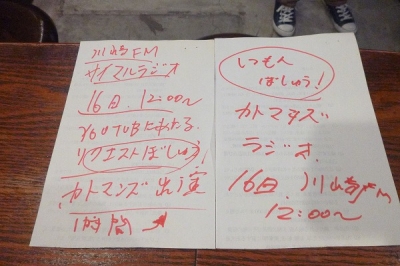 川崎FM
サイマルラジオ
16日.12:00〜
YOUTUBにあたる.
リクエストぼしゅう!
カトマンズ出演
1時間
しつもん
ぼしゅう!
カトマズ
ラジオ.
16日.川崎FM
12:00〜